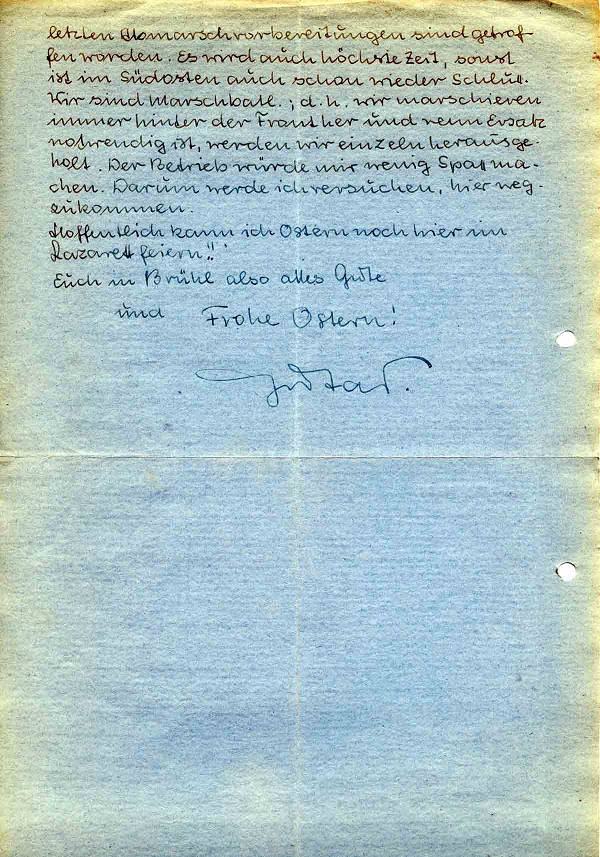 letzten Abmarschvorbereitungen sind getrof-
fen worden. Es wird auch höchste Zeit, sonst
ist im Südosten auch schon wieder Schluß.
Wir sind Marschbatl.; d.h. wir marschieren
immer hinter der Front her und wenn Ersatz
notwendig ist, werden wir einzeln herausge-
holt. Der Betrieb würde mir wenig Spaß ma-
chen. Darum werde ich versuchen, hier weg-
zukommen.
Hoffentlich kann ich Ostern noch hier im
Lazarett feiern!!
Euch in Brühl also alles Gute
und Frohe Ostern!
Gustav.